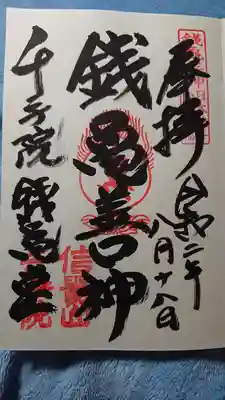 奉拝
令和二年
八月十八日
銭亀善神
千手院
銭亀堂
信貴山